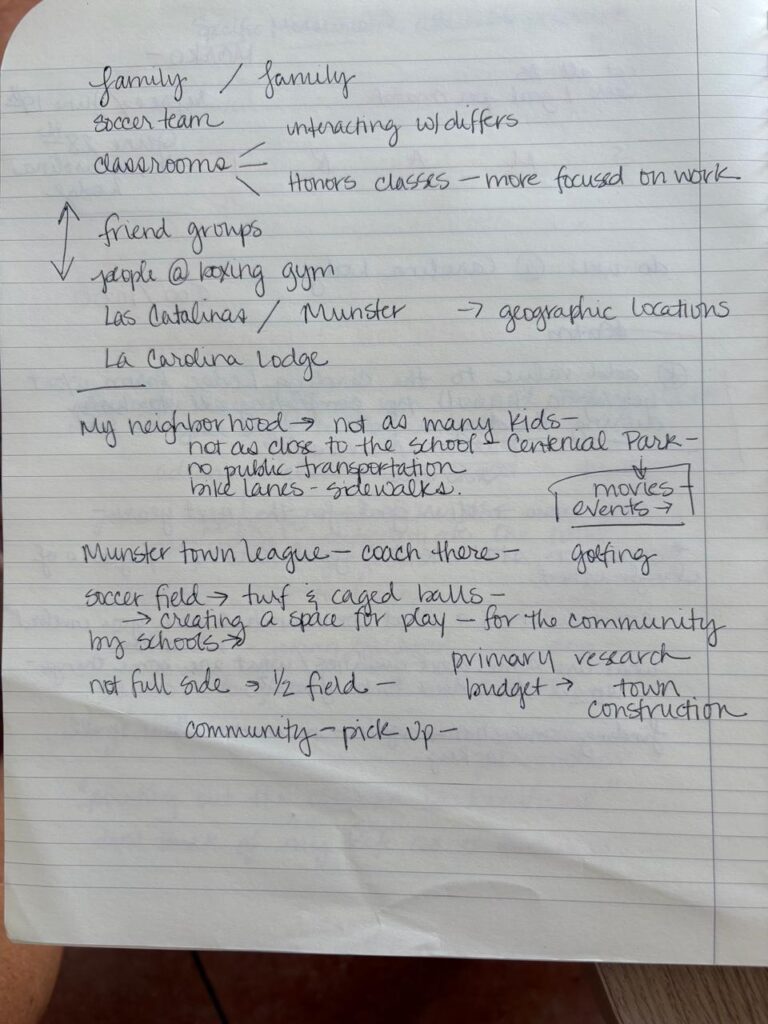 family / family
soccer team
interacting w/ differs
classrooms
Honors classes — more focused on work
friend groups
people @ boxing gym
Las Catalinas / Munster → geographic locations
La Carolina Lodge
My neighborhood → not as many kids –
not as close to the school – Centenial Park –
no public transportation
bike lanes – sidewalks.
movies –
events →
Munster town league – coach there – golfing
soccer field → turf & caged balls –
→ creating a space for play – for the community
by schools →
primary research
not full side → 1/2 field – budget → town
construction
community – pick up –